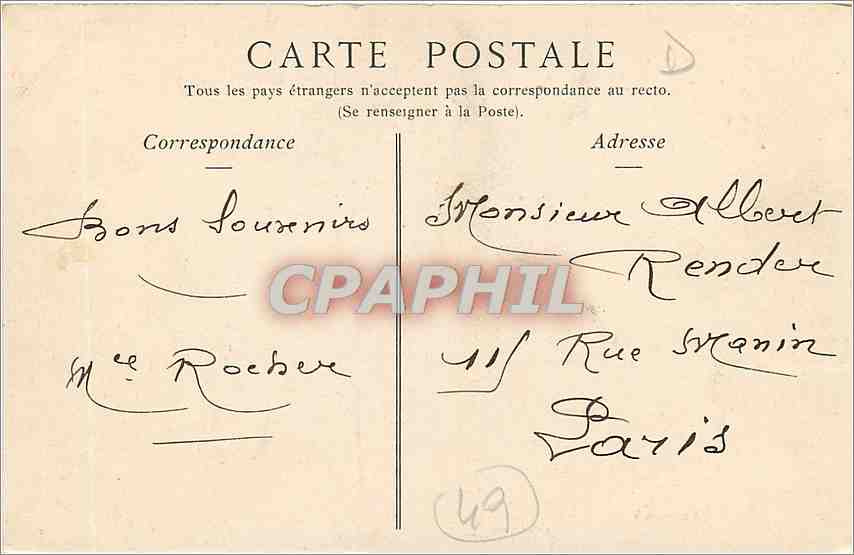 CARTE POSTALE
D
Tous les pays étrangers n'acceptent pas la correspondance au recto.
(Se renseigner à la Poste).
Correspondance
Bons Souvenirs
Mce Rocher
Adresse
Monsieur Albert
Render
115 Rue Manin
Paris
49
CPAPHIL